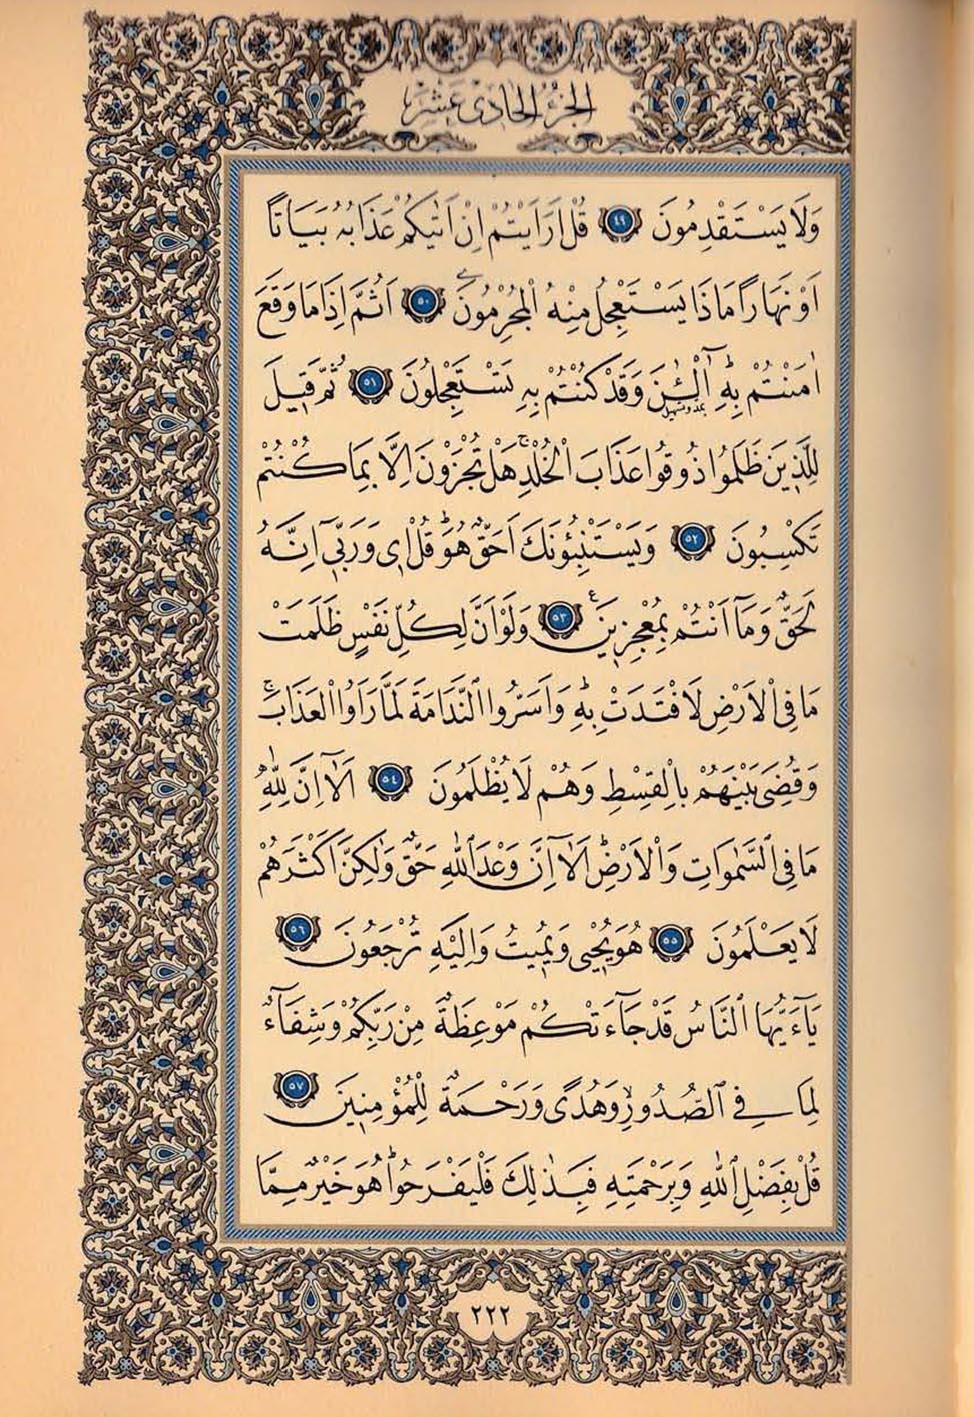 الجزء الحادى عشر
وَلَا يَسْتَقْدِمُونَ ٤٩ قُلْ اَرَاَيْتُمْ اِنْ اَتٰيكُمْ عَذَابُهُ بَيَاتًا
اَوْ نَهَارًا مَاذَا يَسْتَعْجِلُ مِنْهُ الْمُجْرِمُونَ ٥٠ اَثُمَّ اِذَا مَا وَقَعَ
اٰمَنْتُمْ بِهِ آلْـٰٔنَ وَقَدْ كُنْتُمْ بِهِ تَسْتَعْجِلُونَ ٥١ ثُمَّ قِيلَ
لِلَّذِينَ ظَلَمُوا ذُوقُوا عَذَابَ الْخُلْدِ هَلْ تُجْزَوْنَ اِلَّا بِمَا كُنْتُمْ
تَكْسِبُونَ ٥٢ وَيَسْتَنْبِؤُنَكَ اَحَقٌّ هُوَ قُلْ اِى وَرَبِّى اِنَّهُ
لَحَقٌّ وَمَآ اَنْتُمْ بِمُعْجِزِينَ ٥٣ وَلَوْ اَنَّ لِكُلِّ نَفْسٍ ظَلَمَتْ
مَا فِى الْاَرْضِ لَافْتَدَتْ بِهِ وَاَسَرُّوا النَّدَامَةَ لَمَّا رَاَوُا الْعَذَابَ
وَقُضِىَ بَيْنَهُمْ بِالْقِسْطِ وَهُمْ لَا يُظْلَمُونَ ٥٤ اَلَآ اِنَّ لِلّٰهِ
مَا فِى السَّمٰوَاتِ وَالْاَرْضِ اَلَآ اِنَّ وَعْدَ اللّٰهِ حَقٌّ وَلٰكِنَّ اَكْثَرَهُمْ
لَا يَعْلَمُونَ ٥٥ هُوَ يُحْيِى وَيُمِيتُ وَاِلَيْهِ تُرْجَعُونَ ٥٦
يَآءَيُّهَا النَّاسُ قَدْ جَآءَتْكُمْ مَوْعِظَةٌ مِنْ رَبِّكُمْ وَشِفَآءٌ
لِمَا فِى الصُّدُورِ وَهُدًى وَرَحْمَةٌ لِلْمُؤْمِنِينَ ٥٧
قُلْ بِفَضْلِ اللّٰهِ وَبِرَحْمَتِهِ فَبِذٰلِكَ فَلْيَفْرَحُوا هُوَ خَيْرٌ مِمَّا
٢٢٢